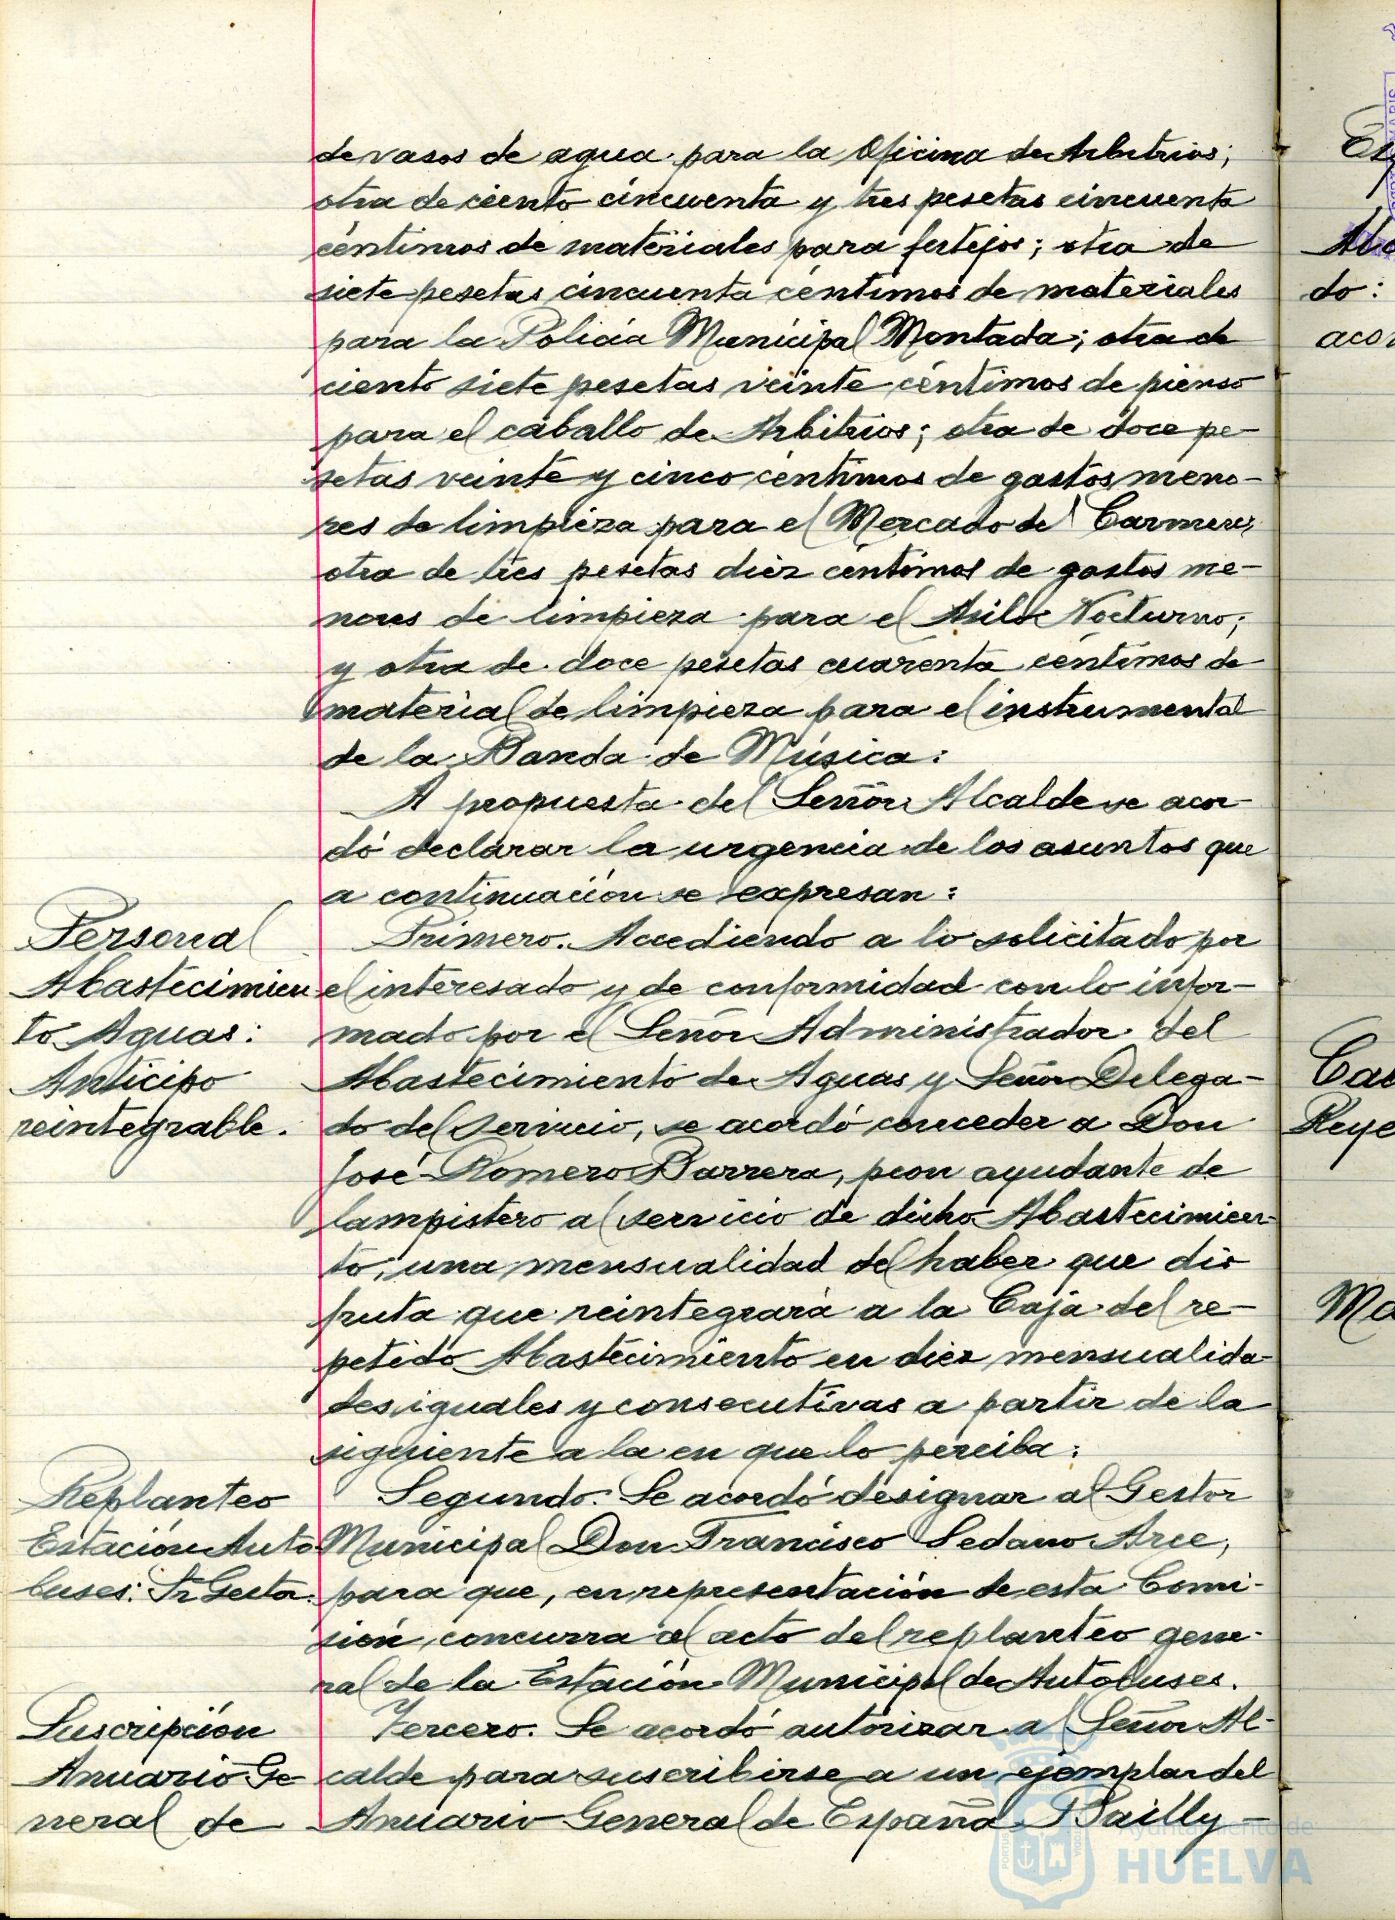 de vasos de agua para la Oficina de Arbitrios;
otra de ciento cincuenta y tres pesetas cincuenta
céntimos de materiales para festejos; otra de
siete pesetas cincuenta céntimos de materiales
para la Policía Municipal Montada; otra de
ciento siete pesetas veinte céntimos de pienso
para el caballo de Arbitrios; otra de doce pe-
setas veinte y cinco céntimos de gastos meno-
res de limpieza para el Mercado del Carmen;
otra de tres pesetas diez céntimos de gastos me-
nores de limpieza para el Asilo Nocturno;
y otra de doce pesetas cuarenta céntimos de
material de limpieza para el instrumental
de la Banda de Música:
A propuesta del Señor Alcalde se acor-
dó declarar la urgencia de los asuntos que
a continuación se expresan:
Personal
Abastecimien
to Aguas:
Anticipo
reintegrable.
Primero. Accediendo a lo solicitado por
el interesado y de conformidad con lo infor-
mado por el Señor Administrador del
Abastecimiento de Aguas y Señor Delega-
do del Servicio, se acordó conceder a Don
José Romero Barrera, peon ayudante de
lampistero al servicio de dicho Abastecimien-
to, una mensualidad del haber que dis
fruta que reintegrará a la Caja del re-
petido Abastecimiento en diez mensualida-
des iguales y consecutivas a partir de la
siguiente a la en que lo perciba:
Replanteo
Estación Auto
buses: Sr Gestor.
Segundo. Se acordó designar al Gestor
Municipal Don Francisco Sedano Arce,
para que, en representación de esta Comi-
sión, concurra al acto del replanteo gene-
ral de la Estación Municipal de Autobuses.
Suscripción
Anuario Ge
neral de
Tercero. Se acordó autorizar al Señor Al-
calde para suscribirse a un ejemplar del
Anuario General de España Bailly-
Ayuntamiento de
HUELVA
do:
Reye
Ma